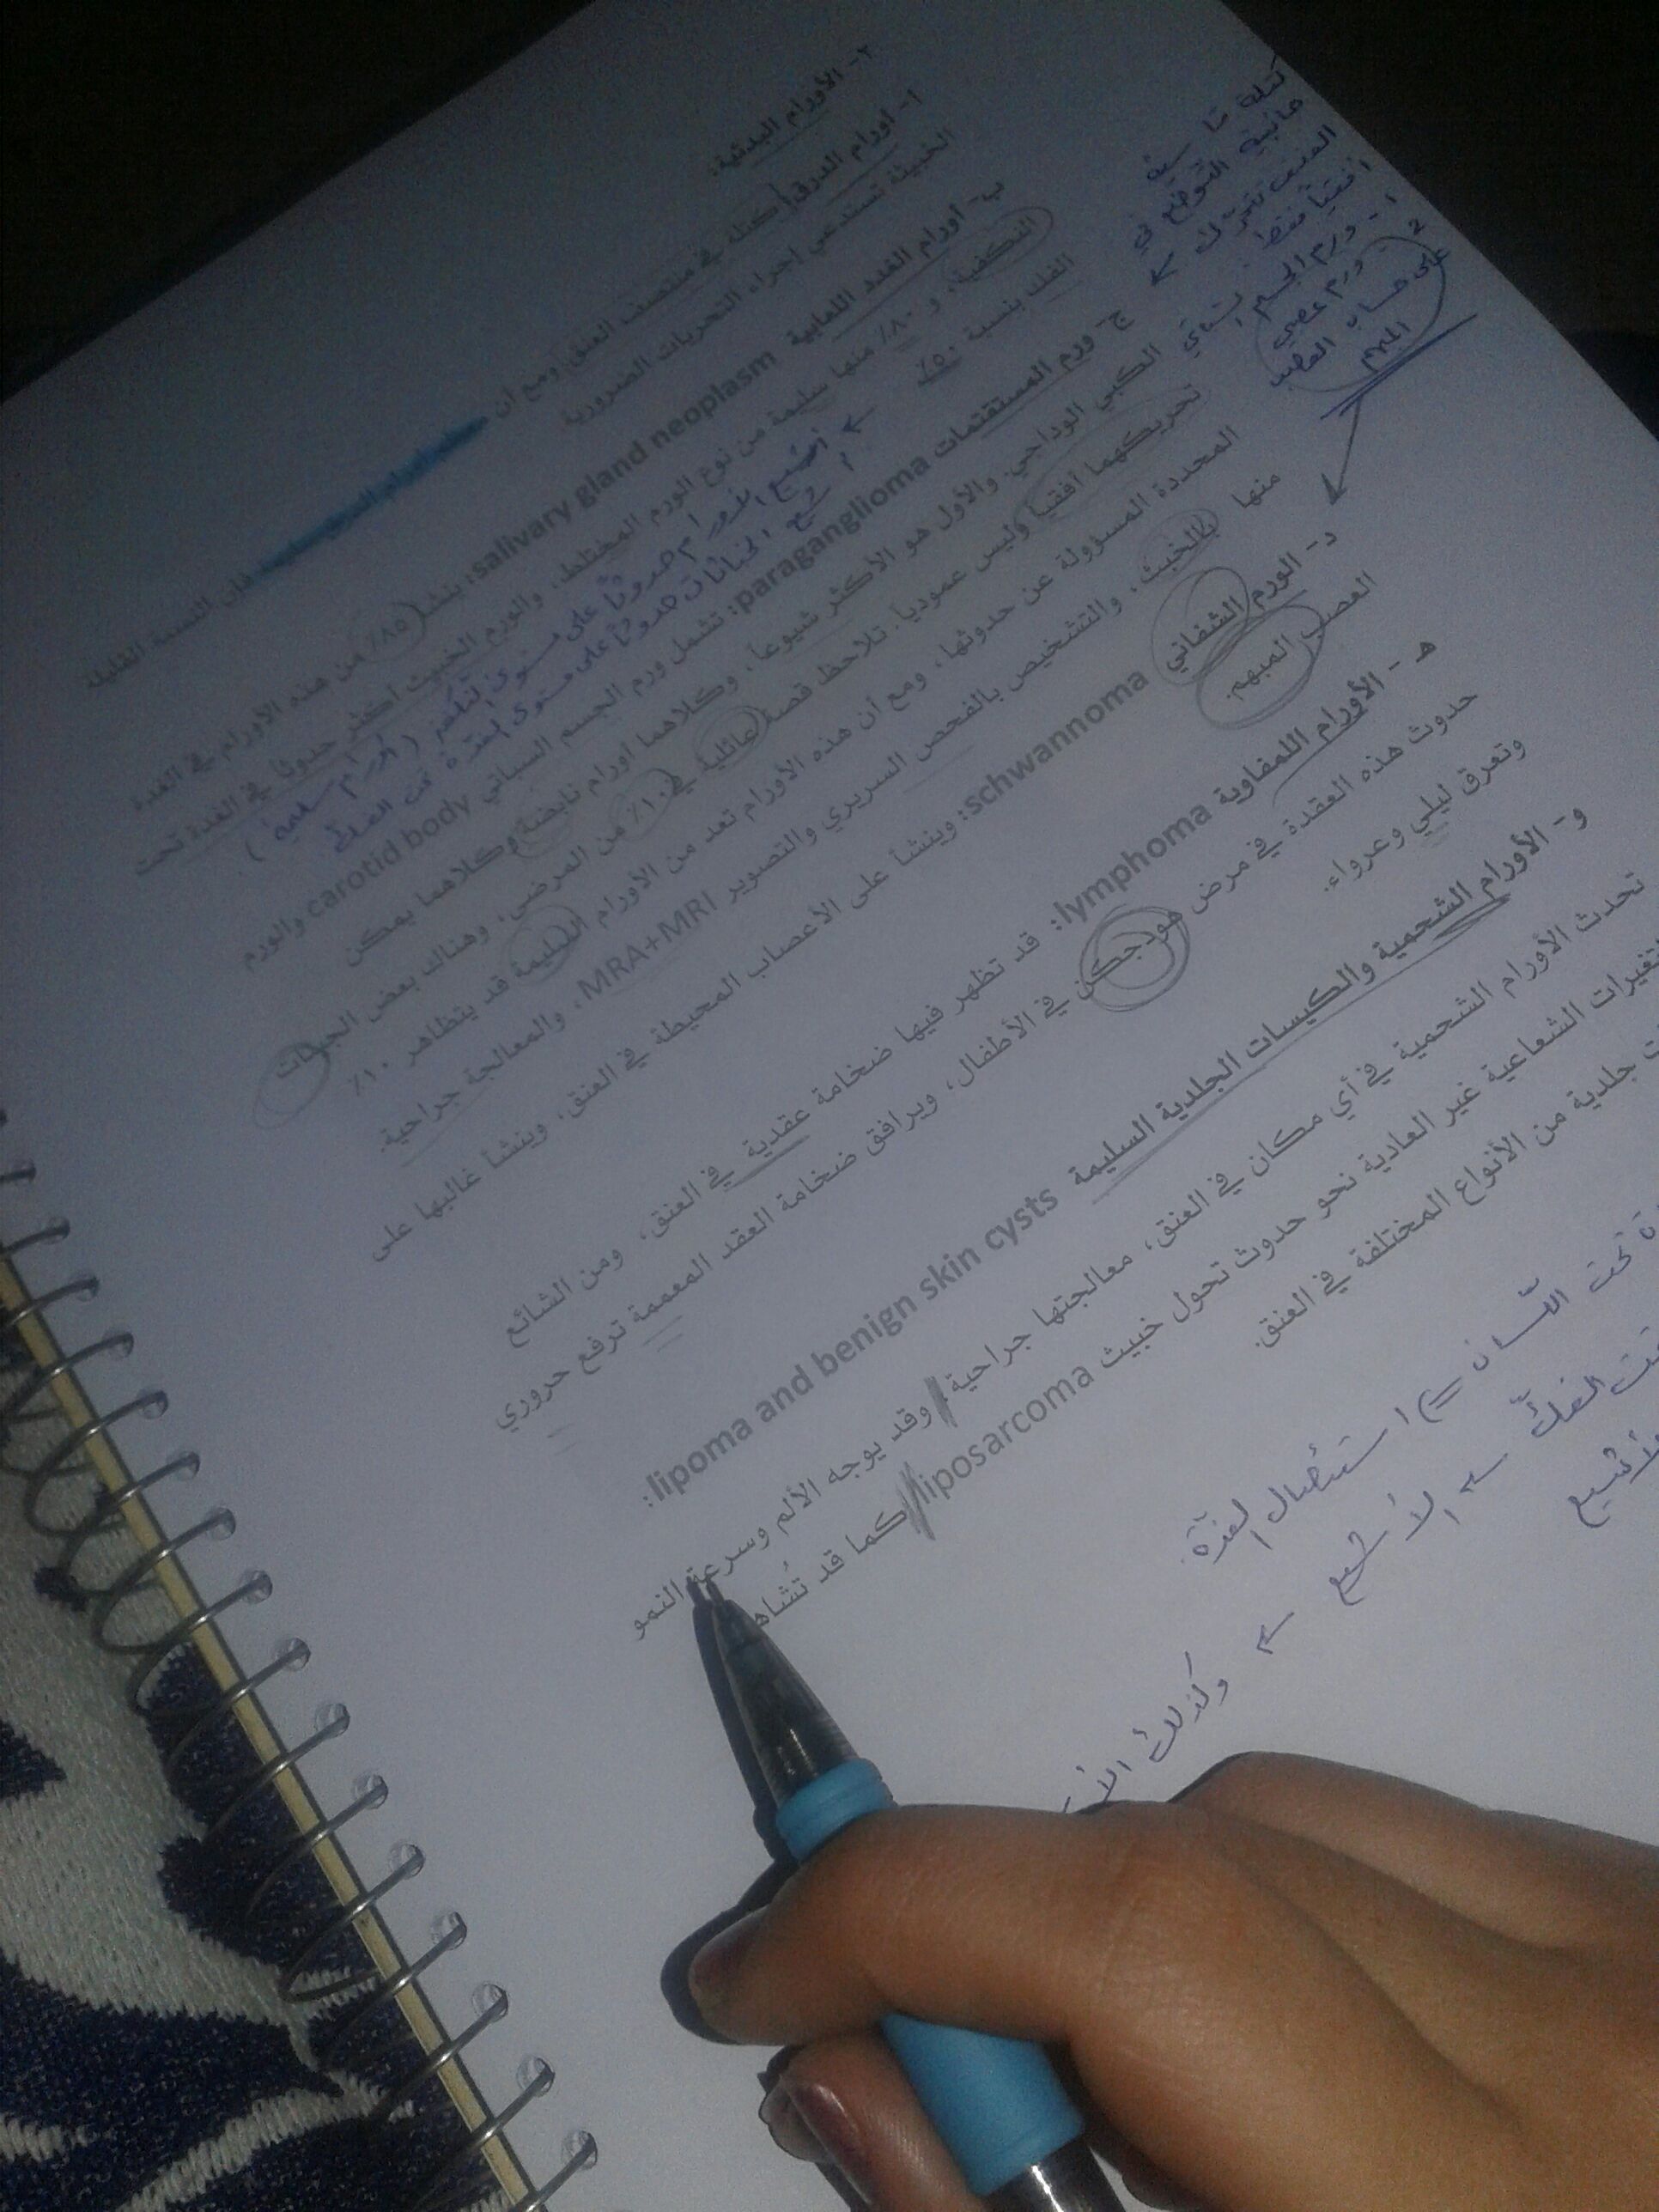 ٢- الأورام البدئية:
١- أورام الدرق: كتلة في منتصف العنق، ومع أن فإن النسبة القليلة
الخبيثة تستدعي إجراء التحريات الضرورية
ب- أورام الغدد اللعابية salivary gland neoplasm: ينشأ ٨٥٪ من هذه الأورام في الغدة
النكفية، و ٨٠٪ منها سليمة من نوع الورم المختلط، والورم الخبيث أكثر حدوثاً في الغدة تحت
الفك بنسبة ٥٠٪
← أشيع الأورام حدوثاً على مستوى النكفة (أورام سليمة)
أشيع الخباثات حدوثاً على مستوى الغدة تحت الفك
ج- ورم المستقتمات paraganglioma: تشمل ورم الجسم السباتي carotid body والورم
الكبي الوداجي. والأول هو الأكثر شيوعاً، وكلاهما أورام نابضة وكلاهما يمكن
تحريكهما أفقياً وليس عمودياً. تلاحظ قصة عائلية في ١٠٪ من المرضى، وهناك بعض الجينات
المحددة المسؤولة عن حدوثها، ومع أن هذه الأورام تعد من الأورام السليمة قد يتظاهر ١٠٪
منها بالخبث، والتشخيص بالفحص السريري والتصوير MRA+MRI، والمعالجة جراحية.
د- الورم الشفاني schwannoma: وينشأ على الأعصاب المحيطة في العنق، وينشأ غالبها على
العصب المبهم.
هـ- الأورام اللمفاوية lymphoma: قد تظهر فيها ضخامة عقدية في العنق، ومن الشائع
حدوث هذه العقدة في مرض هودجكن في الأطفال، ويرافق ضخامة العقد المعممة ترفع حروري
وتعرق ليلي وعرواء.
و- الأورام الشحمية والكيسات الجلدية السليمة lipoma and benign skin cysts:
تحدث الأورام الشحمية في أي مكان في العنق، معالجتها جراحية، وقد يوجه الألم وسرعة النمو
تغيرات الشعاعية غير العادية نحو حدوث تحول خبيث liposarcoma كما قد تُشاهد
جلدية من الأنواع المختلفة في العنق.
كتلة ما
جانبية التوضع في
العنق تتحرك
أفقياً فقط
١- ورم الجسم السباتي
2- ورم عصبي
على حساب العصب
المبهم
تحت اللسان => استئصال الغدة.
تحت الفك ← الأشيع
الأشيع ← وكذلك